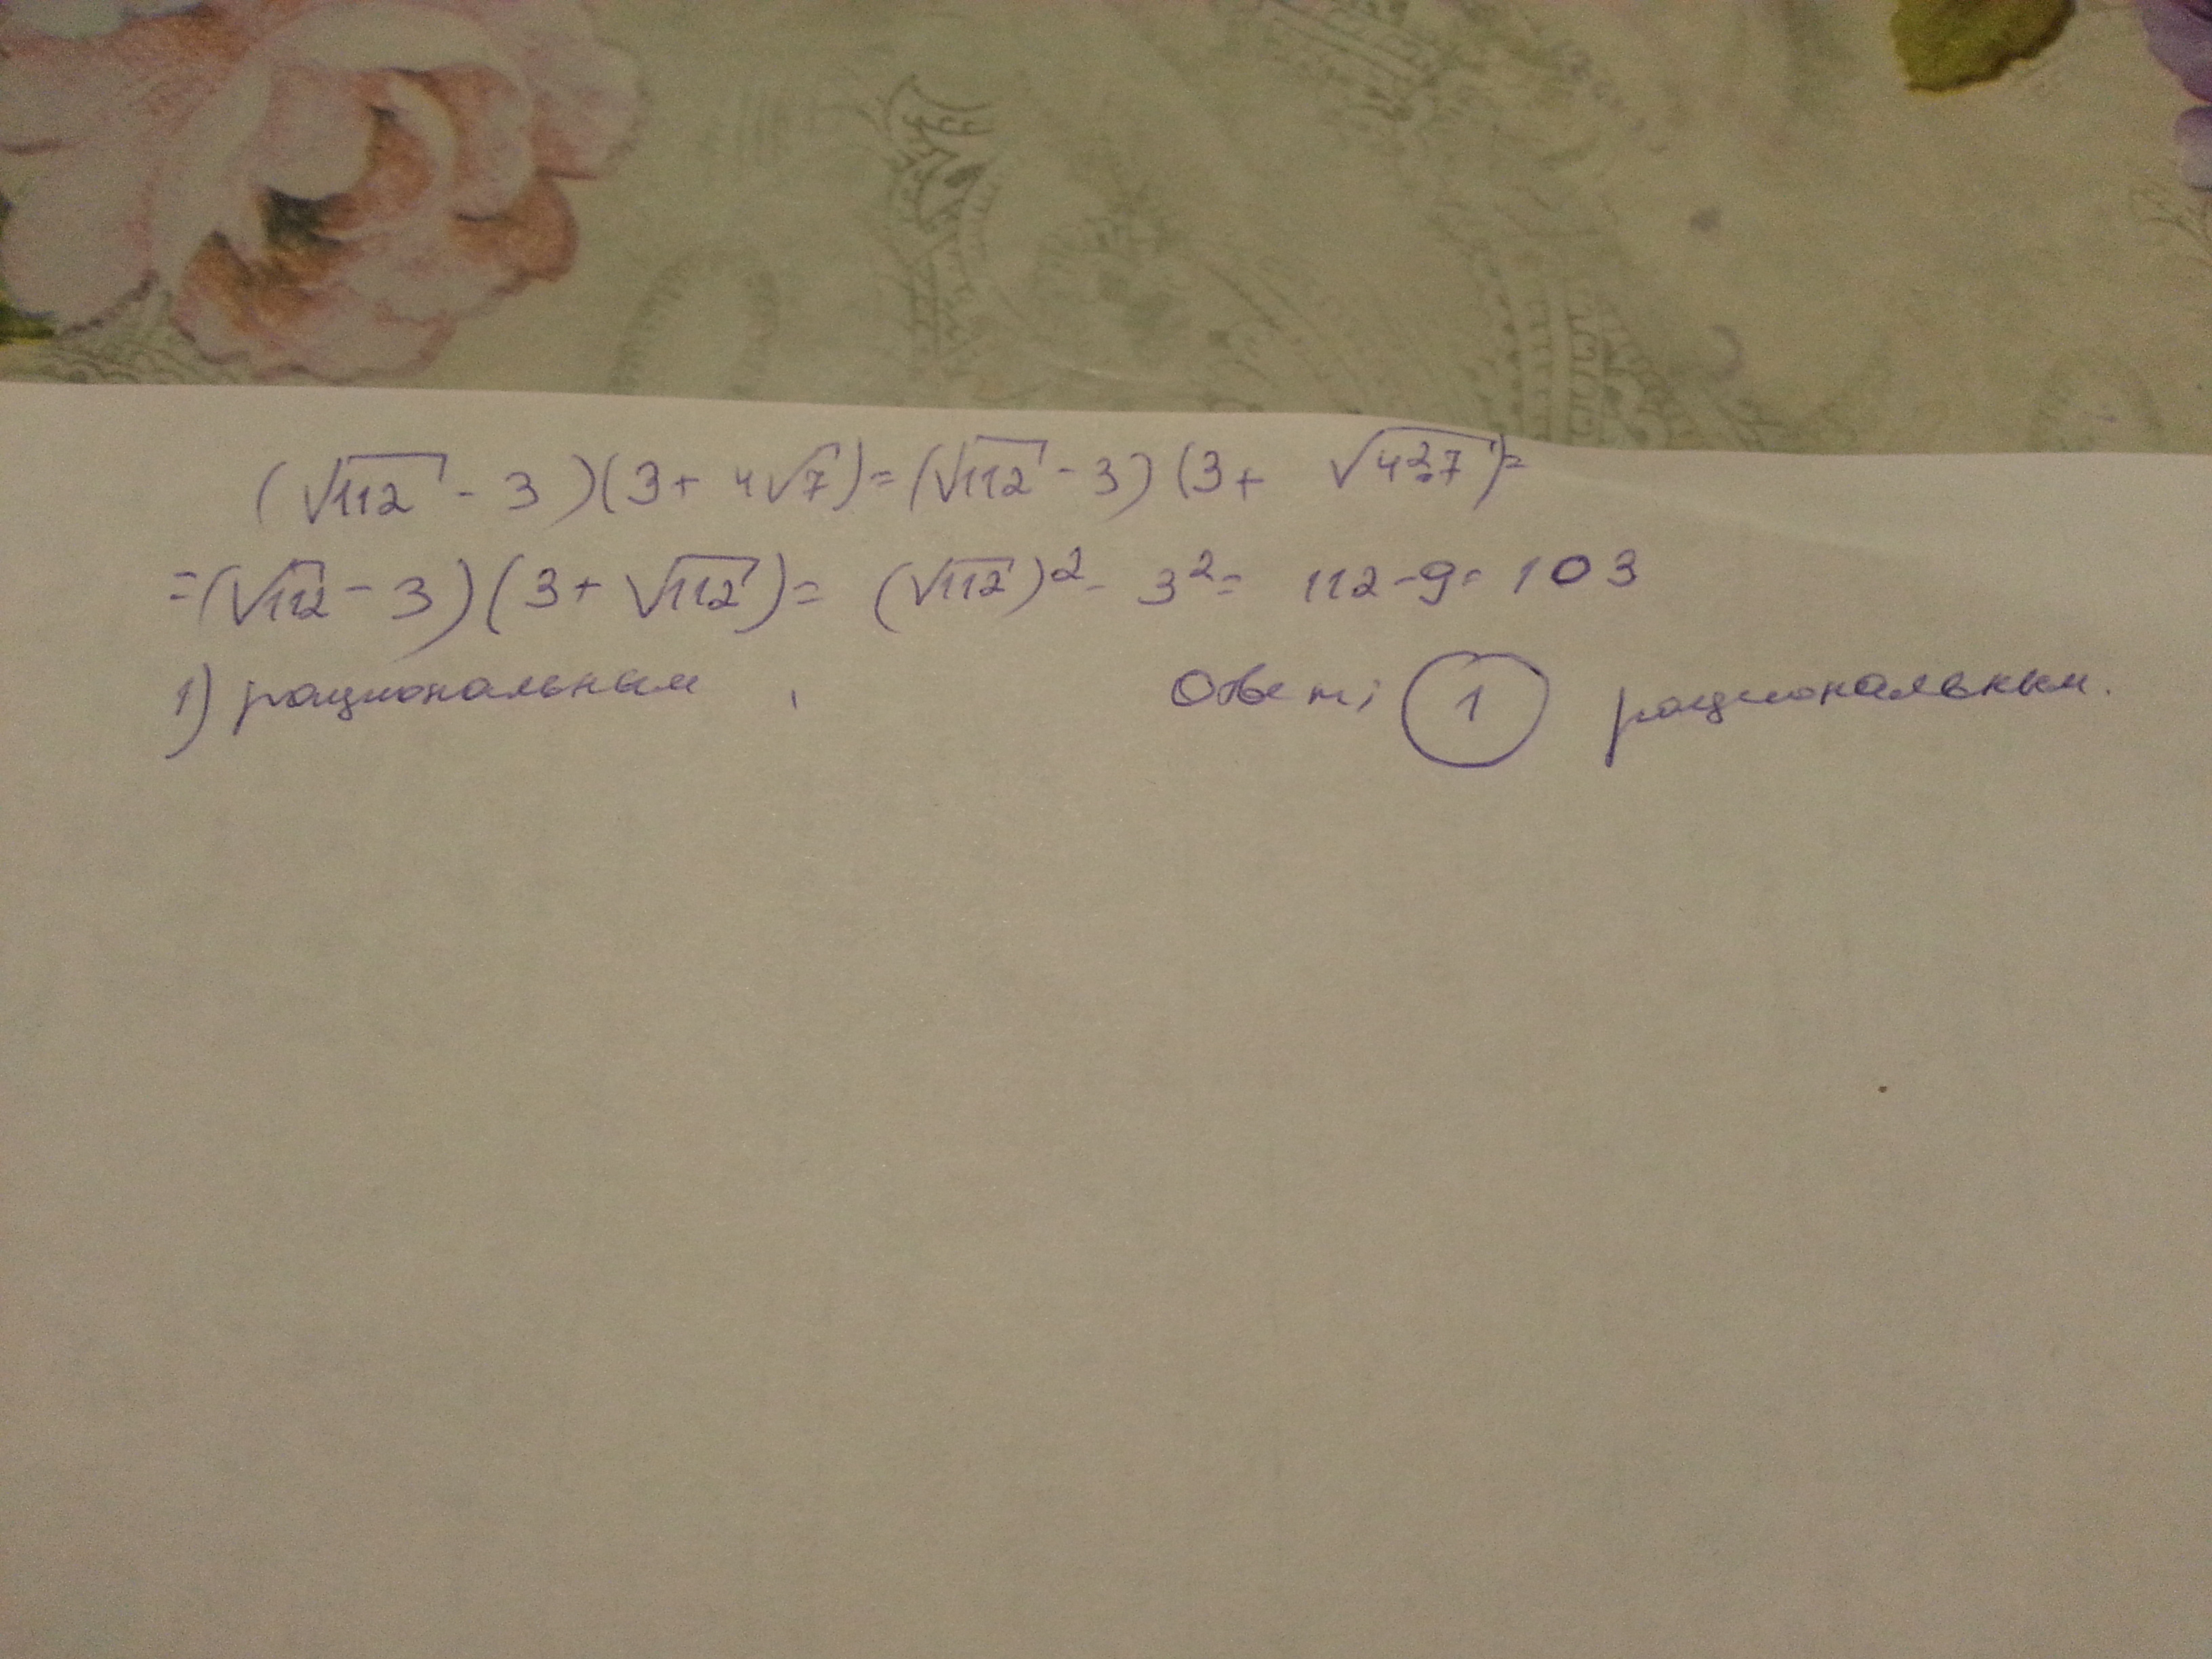 (√112 - 3)(3 + 4√7) = (√112 - 3)(3 + √4²·7) =
= (√112 - 3)(3 + √112) = (√112)² - 3² = 112 - 9 = 103
1) рациональным , Ответ: 1 рациональным.